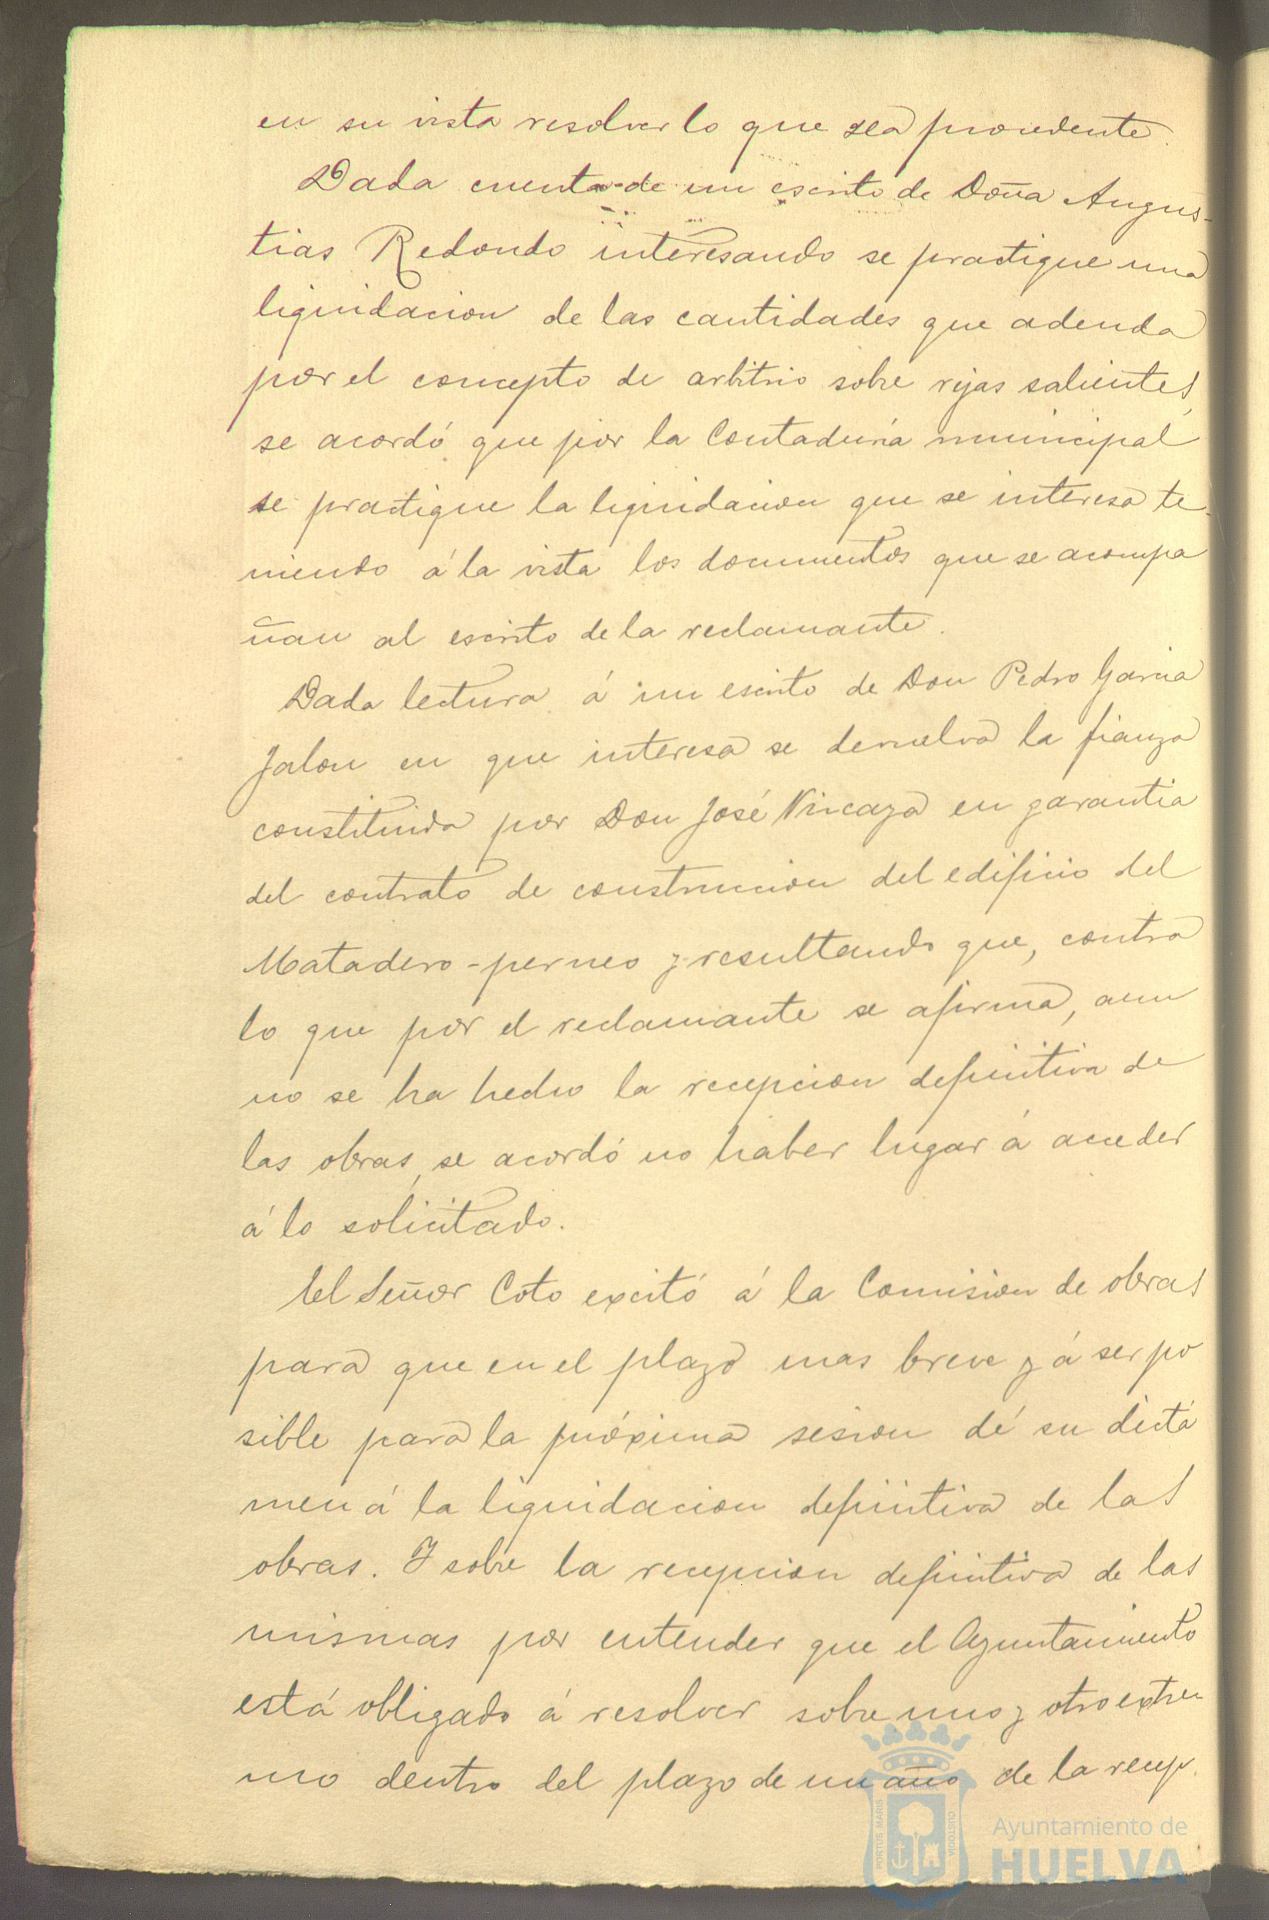 en su vista resolver lo que sea procedente.
Dada cuenta de un escrito de Doña Angus-
tias Redondo interesando se practique una
liquidacion de las cantidades que adeuda
por el concepto de arbitrio sobre rejas salientes,
se acordó que por la Contaduría municipal
se practique la liquidacion que se interesa te-
niendo á la vista los documentos que se acompa
ñan al escrito de la reclamante.
Dada lectura á un escrito de Don Pedro Garcia
Jalon en que interesa se devuelva la fianza
constituida por Don José Vizcaya en garantia
del contrato de construccion del edificio del
Matadero-perneo y resultando que, contra
lo que por el reclamante se afirma, aun
no se ha hecho la recepcion definitiva de
las obras, se acordó no haber lugar á acceder
á lo solicitado.
El Señor Coto excitó á la Comision de obras
para que en el plazo mas breve y á ser po
sible para la próxima sesion dé su dictá
men á la liquidacion definitiva de las
obras. Y sobre la recepcion definitiva de las
mismas por entender que el Ayuntamiento
está obligado á resolver sobre uno y otro extre
mo dentro del plazo de un año de la recep.
PORTUS MARIS
CUSTODIA
Ayuntamiento de
HUELVA